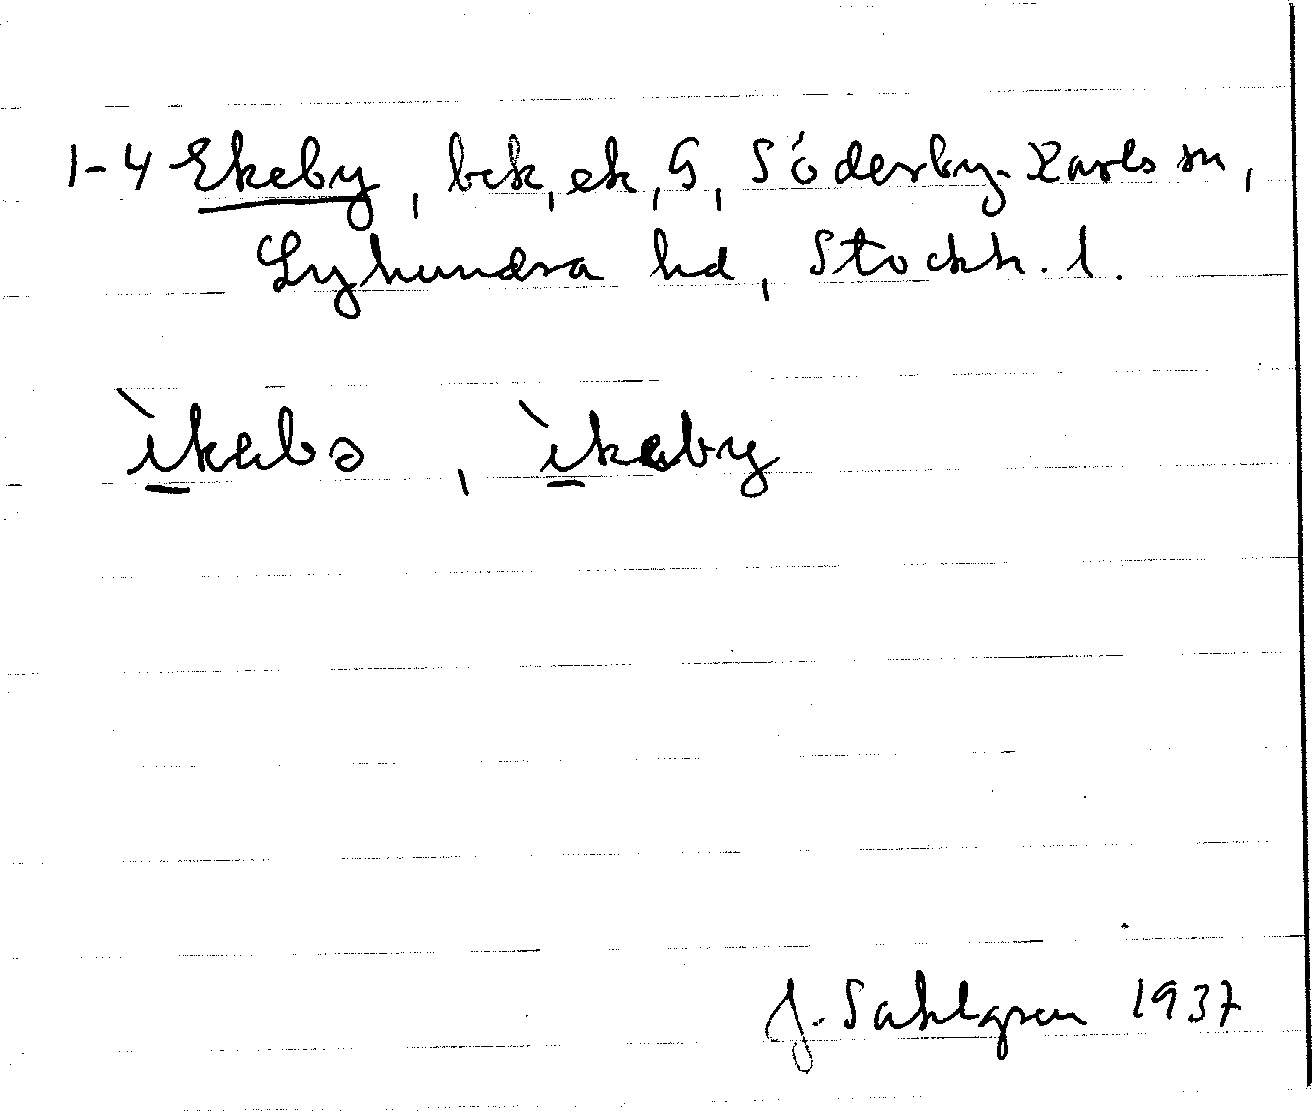 1-4 Ekeby, bek, ek, G, Söderby-Karls sn,
Lyhundra hd, Stockh. l.
ìkebə, ìkeby
J. Sahlgren 1937